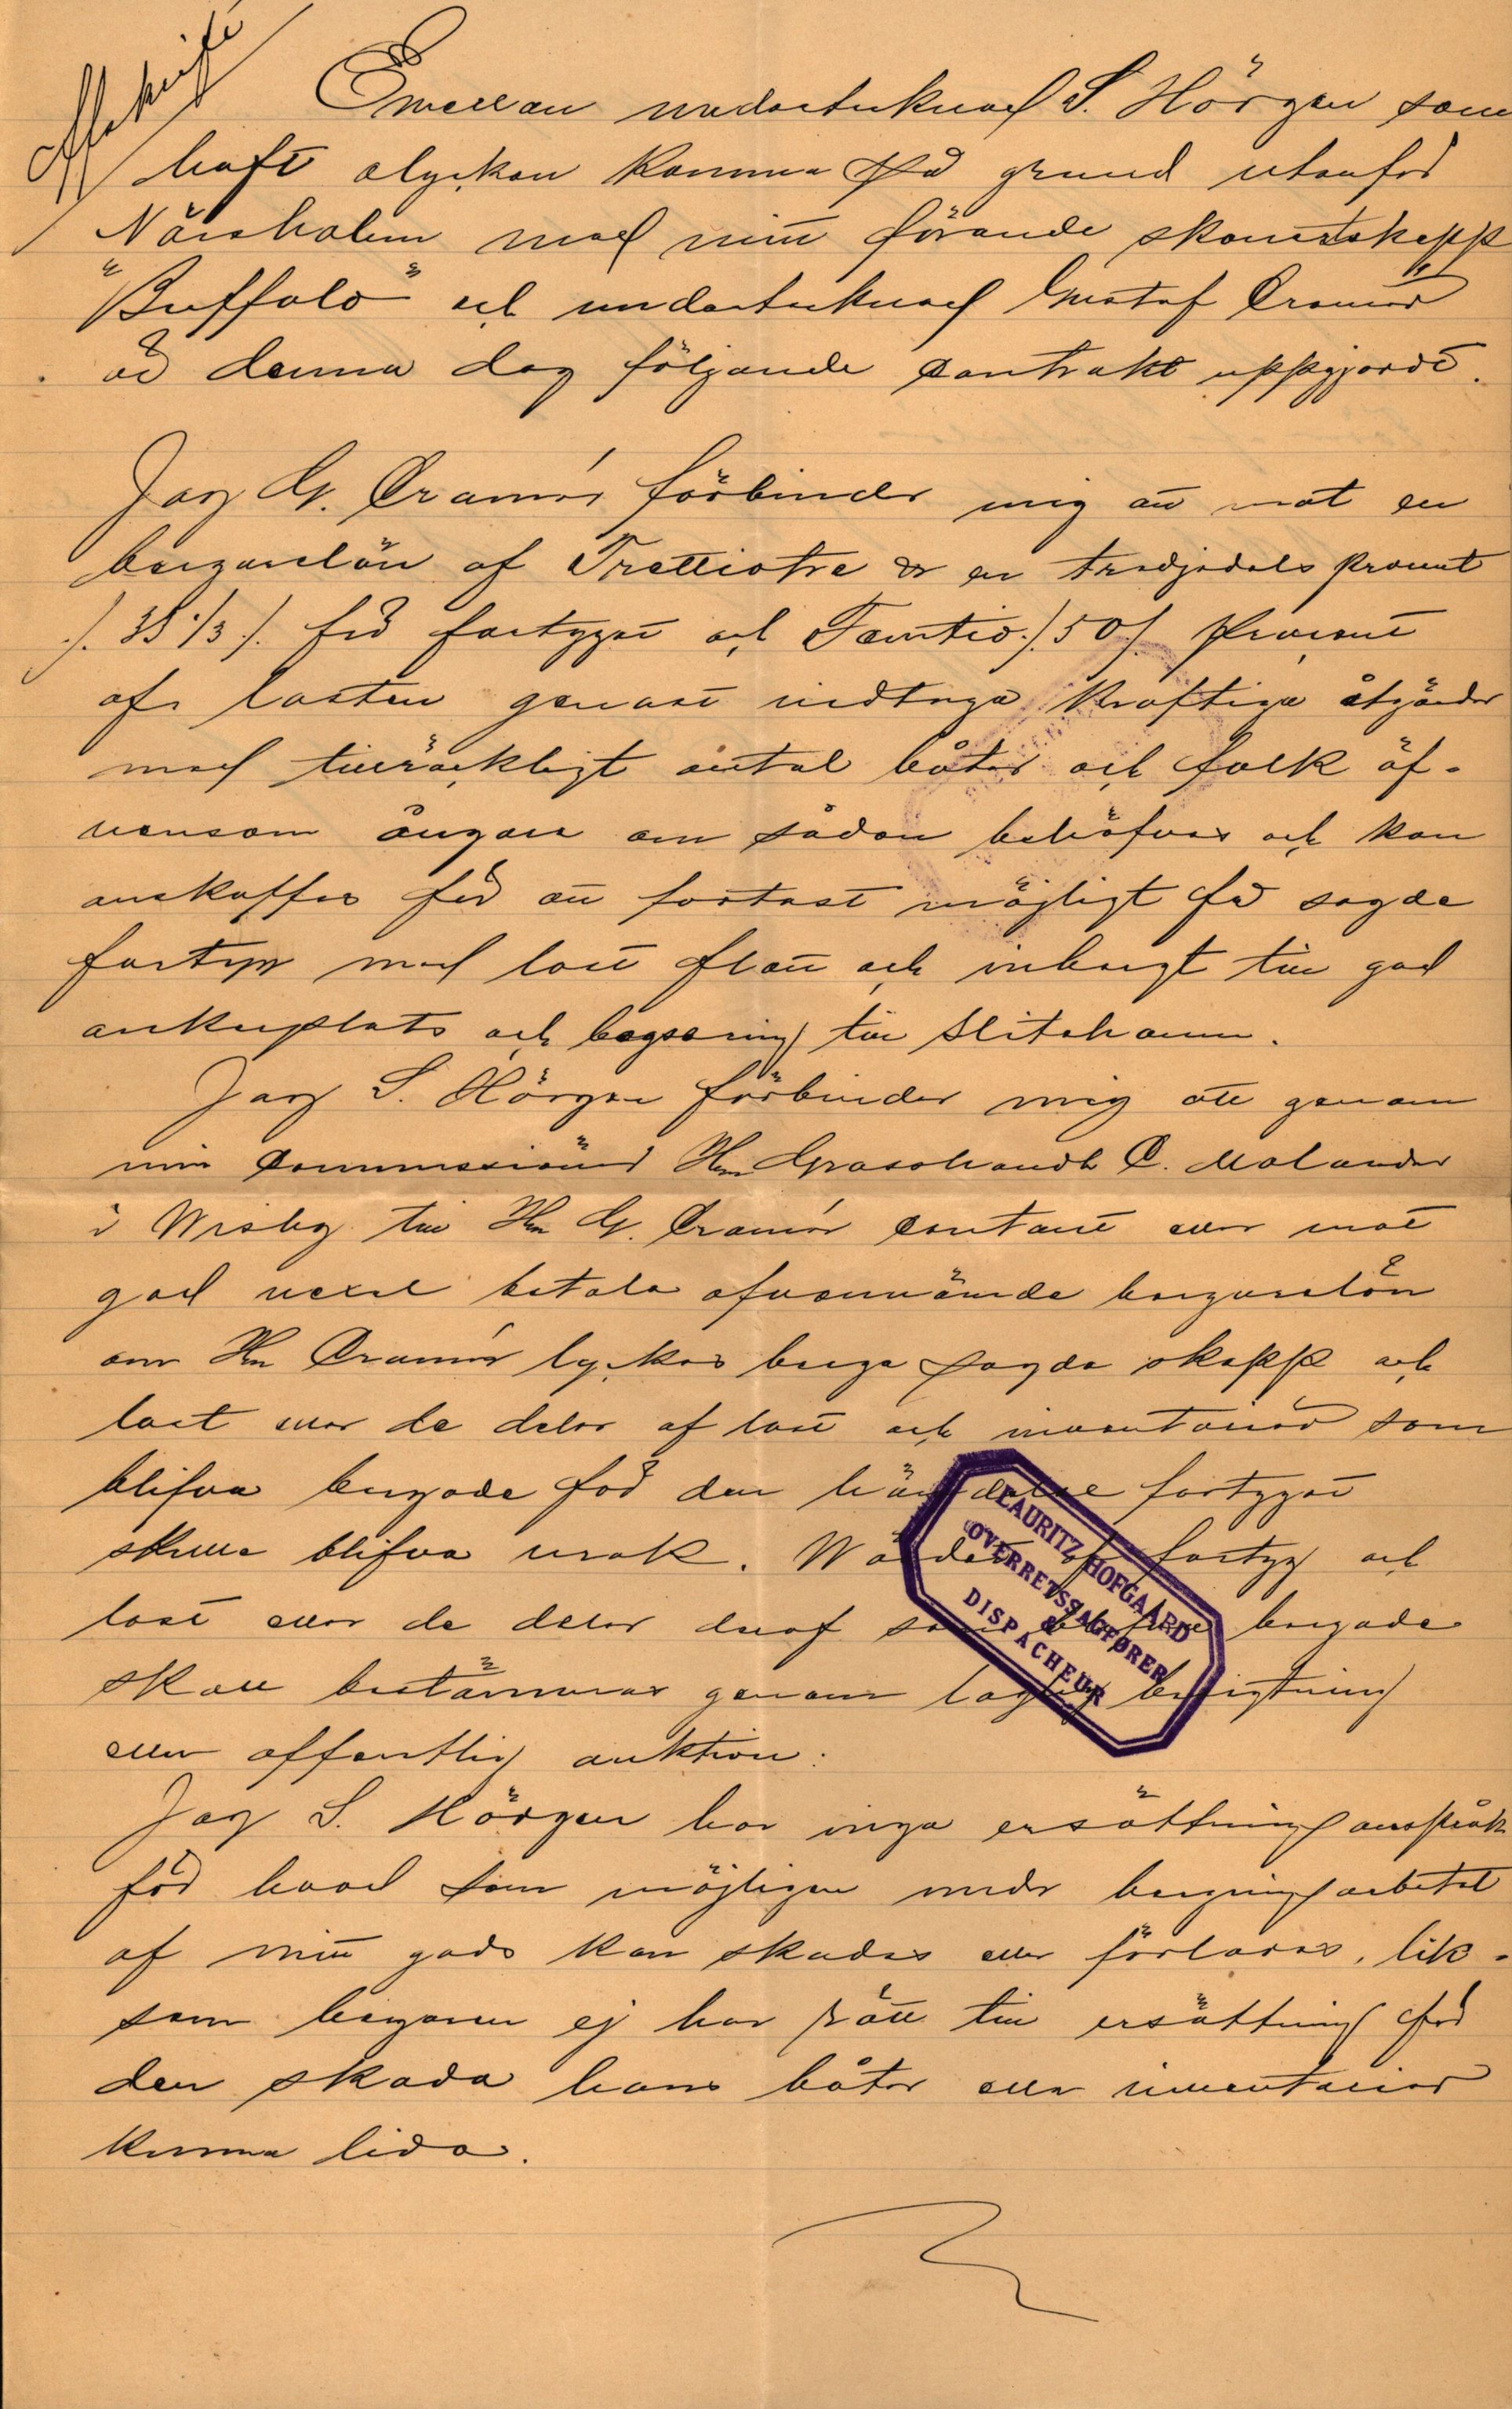 Afskrift
Emellan undertecknad S. Hörgen som
haft olyckan komma på grund utanför
Närsholm med mitt förande skonertskepp
"Buffalo" och undertecknad Gustaf Cramér
är denna dag följande contrakt uppgjordt.
Jag G. Cramér förbinder mig att mot en
bergarelön af Trettiotre & en tredjedels procent
./. 33 1/3 ./. för fartyget och Femtio ./. 50 ./. Procent
af lasten genast vidtaga kraftiga åtgärder
med tillräckligt antal båtar och folk äf-
vensom ångare om sådan behöfves och kan
anskaffas för att fortast möjligt få sagde
fartyg med last flott och inbergt till god
ankerplats och bogsering till Slitehamn.
Jag S. Hörgen förbinder mig att genom
min Commissionär Herr Grosshandl C. Molander
i Wisby till Hrr G. Cramér contant eller mot
god vexel betala ofvannämnde bergarelön
om Hrr Cramér lyckas berga sagda skepp och
last eller de delar af last och inventarier som
blifva bergade för den händelse fartyget
skulle blifva vrak. Wärdet af fartyg och
last eller de delar deraf som blifva bergade
skall bestämmas genom laglig besigtning
eller offentlig auktion.
Jag S. Hörgen har inga ersättningsanspråk
för hvad som möjligen under bergningsarbetet
af mitt gods kan skadas eller förloras, lik-
som bergaren ej har rätt till ersättning för
den skada hans båtar eller inventarier
kunna lida.
LAURITZ HOFGAARD
OVERRETSSAGFØRER
&
DISPACHEUR